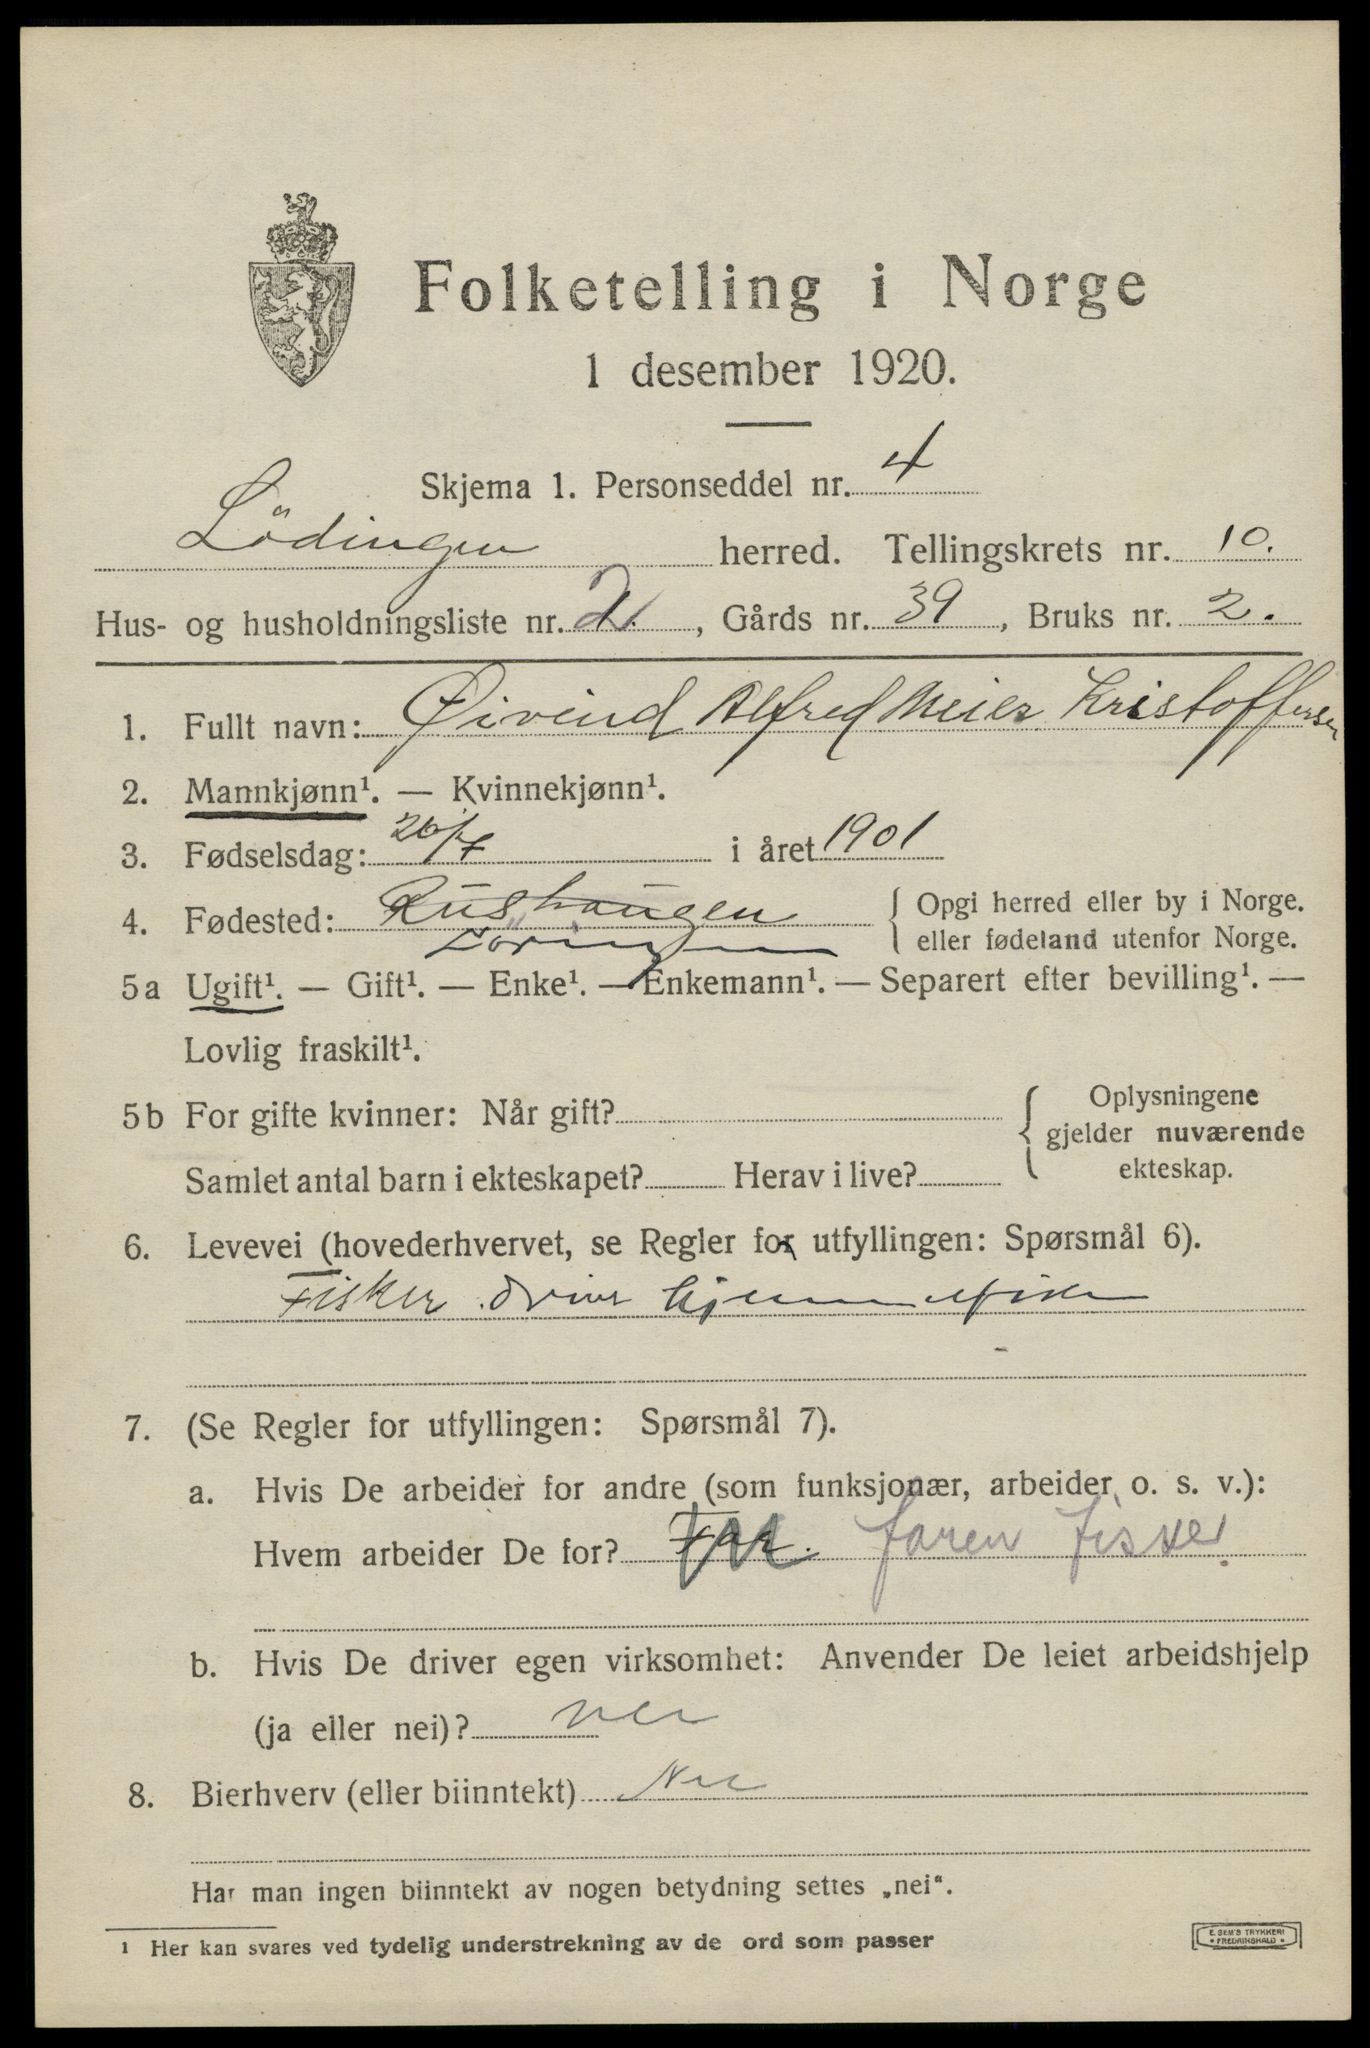 Folketelling i Norge
1 desember 1920.
Skjema 1. Personseddel nr. 4
Lödingen herred. Tellingskrets nr. 10.
Hus- og husholdningsliste nr. 2. , Gårds nr. 39 , Bruks nr. 2.
1. Fullt navn: Øivind Alfred Meier Kristoffersen
2. Mannkjønn¹. — Kvinnekjønn¹.
3. Fødselsdag: 26/7 i året 1901
4. Fødested: Rushaugen
Lödingen
{ Opgi herred eller by i Norge.
eller fødeland utenfor Norge.
5a Ugift¹. — Gift¹. — Enke¹. — Enkemann¹. — Separert efter bevilling¹. —
Lovlig fraskilt¹.
5b For gifte kvinner: Når gift?
Samlet antal barn i ekteskapet? Herav i live?
{ Oplysningene
gjelder nuværende
ekteskap.
6. Levevei (hovederhvervet, se Regler for utfyllingen: Spørsmål 6).
Fisker. driver hjemmefiske
7. (Se Regler for utfyllingen: Spørsmål 7).
a. Hvis De arbeider for andre (som funksjonær, arbeider o. s. v.):
Hvem arbeider De for? Far. faren fisker
b. Hvis De driver egen virksomhet: Anvender De leiet arbeidshjelp
(ja eller nei)? nei
8. Bierhverv (eller biinntekt) Nei
Har man ingen biinntekt av nogen betydning settes „nei“.
¹ Her kan svares ved tydelig understrekning av de ord som passer
E. SEM'S TRYKKERI
• FREDRIKSHALD •